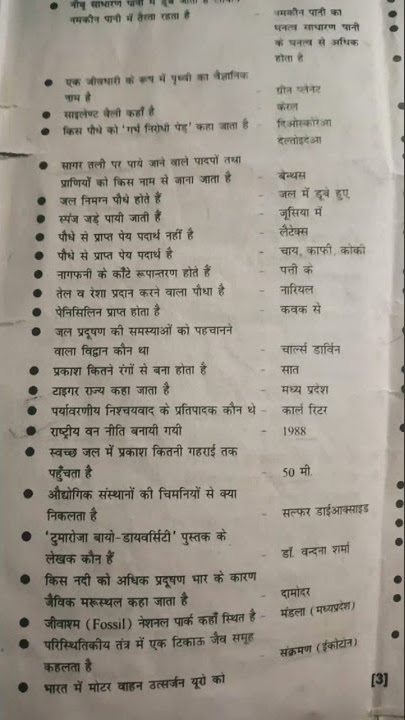 नींबू साधारण पानी में डूब जाता है
नमकीन पानी में तैरता रहता है - नमकीन पानी का
घनत्व साधारण पानी
के घनत्व से अधिक
होता है
● एक जीवधारी के रूप में पृथ्वी का वैज्ञानिक
नाम है - ग्रीन प्लेनेट
● साइलेण्ट वैली कहाँ है - केरल
● किस पौधे को 'गर्भ निरोधी पेड़' कहा जाता है - दिओस्कोरआ
देल्तोइदेआ
● सागर तली पर पाये जाने वाले पादपों तथा
प्राणियों को किस नाम से जाना जाता है - बेन्थस
● जल निमग्न पौधे होते हैं - जल में डूबे हुए
● स्पंज जड़े पायी जाती हैं - जूसिया में
● पौधे से प्राप्त पेय पदार्थ नहीं है - लैटेक्स
● पौधे से प्राप्त पेय पदार्थ है - चाय, काफी, कोको
● नागफनी के काँटे रूपान्तरण होते हैं - पत्ती के
● तेल व रेशा प्रदान करने वाला पौधा है - नारियल
● पेनिसिलिन प्राप्त होता है - कवक से
● जल प्रदूषण की समस्याओं को पहचानने
वाला विद्वान कौन था - चार्ल्स डार्विन
● प्रकाश कितने रंगों से बना होता है - सात
● टाइगर राज्य कहा जाता है - मध्य प्रदेश
● पर्यावरणीय निश्चयवाद के प्रतिपादक कौन थे - कार्ल रिटर
● राष्ट्रीय वन नीति बनायी गयी - 1988
● स्वच्छ जल में प्रकाश कितनी गहराई तक
पहुँचता है - 50 मी.
● औद्योगिक संस्थानों की चिमनियों से क्या
निकलता है - सल्फर डाईआक्साइड
● 'टुमारोजा बायो-डायवर्सिटी' पुस्तक के
लेखक कौन हैं - डॉ. वन्दना शर्मा
● किस नदी को अधिक प्रदूषण भार के कारण
जैविक मरूस्थल कहा जाता है - दामोदर
● जीवाश्म (Fossil) नेशनल पार्क कहाँ स्थित है - मंडला (मध्यप्रदेश)
● परिस्थितिकीय तंत्र में एक टिकाऊ जैव समूह
कहलता है - संक्रमण (ईकोटोन)
● भारत में मोटर वाहन उत्सर्जन यूरो को
[3]